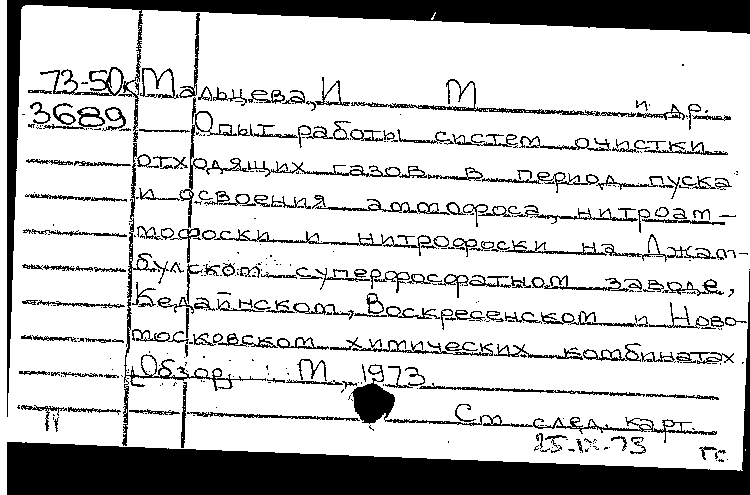 73-50к Мальцева, И М и др.
3689 Опыт работы систем очистки
отходящих газов в период пуска
и освоения аммофоса, нитроам-
мофоски и нитрофоски на Джам-
булском суперфосфатном заводе,
Кедайнском, Воскресенском и Ново-
московском химических комбинатах.
[Обзор] М., 1973.
См след. карт.
25-IX-73 ТС